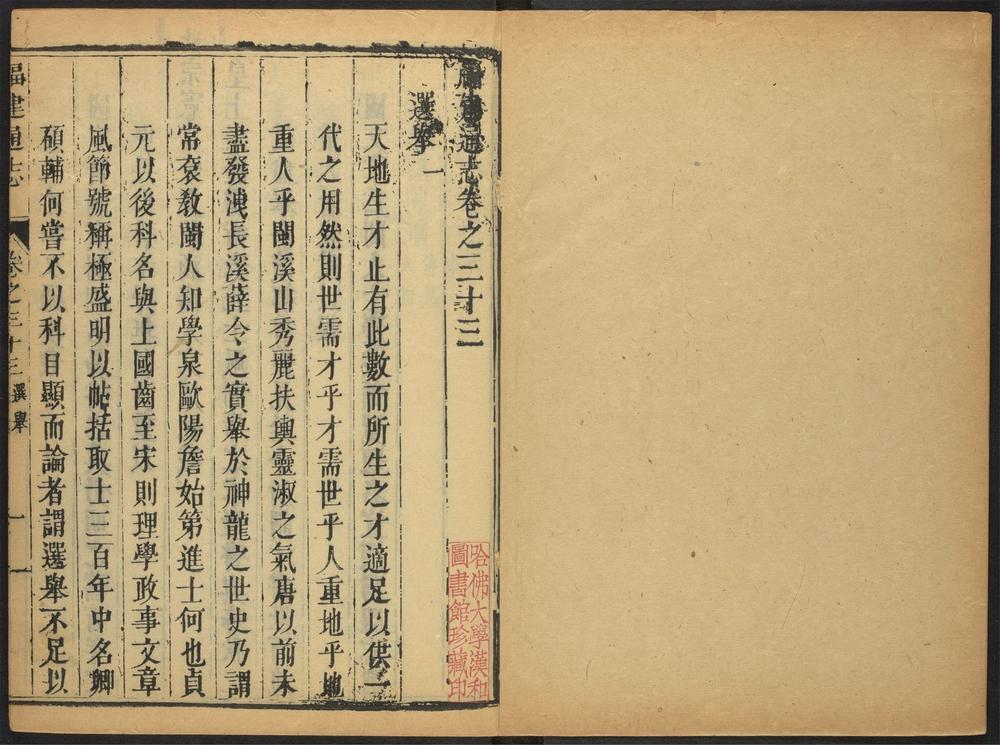 福建通志卷之三十三
選舉一
天地生才止有此數而所生之才適足以供一
代之用然則世需才乎才需世乎人重地乎地
重人乎閩溪山秀麗扶輿靈淑之氣唐以前未
盡發洩長溪薛令之實舉於神龍之世史乃謂
常衮敎閩人知學泉歐陽詹始第進士何也貞
元以後科名與上國齒至宋則理學政事文章
風節號稱極盛明以帖括取士三百年中名卿
碩輔何嘗不以科目顯而論者謂選舉不足以
福建通志
卷之三十三 選舉 一
哈佛大學漢和
圖書館珍藏印